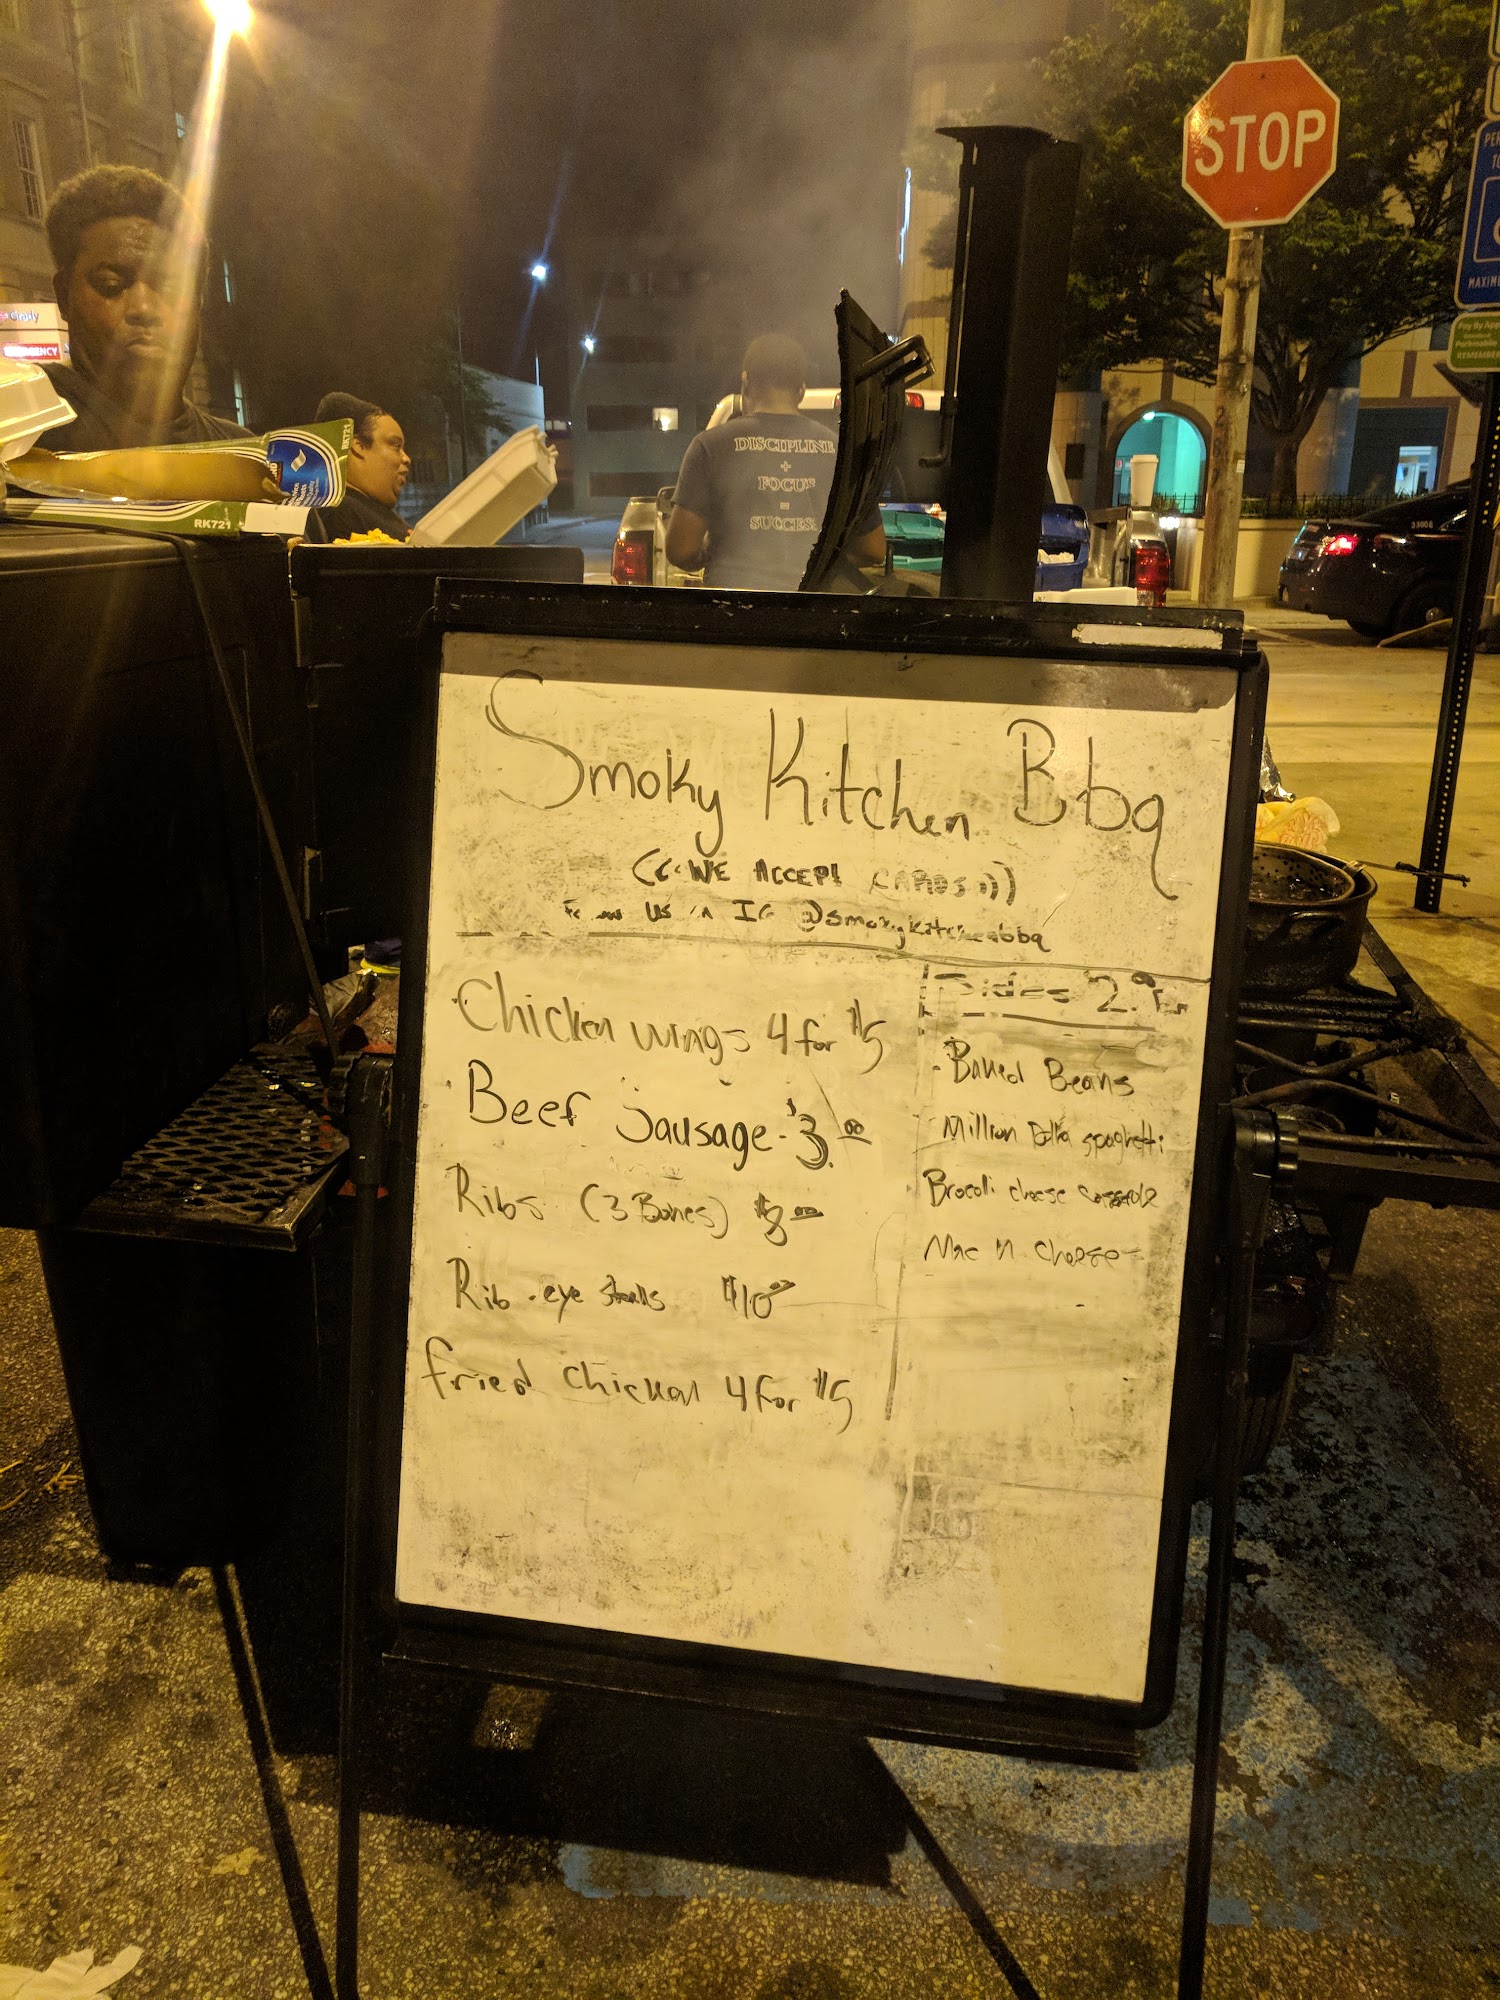 STOP
Grady
EMERGENCY
RK721
RK721
DISCIPLINE
+
FOCUS
=
SUCCESS
33008
MAXIM
Pay By App
Parkmobile
REMEMBER
Smoky Kitchen Bbq
(((WE ACCEPT CARDS)))
Follow us on IG @smokykitchenbbq
Chicken wings 4 for $5
Beef Sausage - $3.00
Ribs (3 Bones)
Rib-eye $10.00
fried chicken 4 for $5
Sides
Baked Beans
Million Dolla spaghetti
Brocoli cheese
Mac n cheese